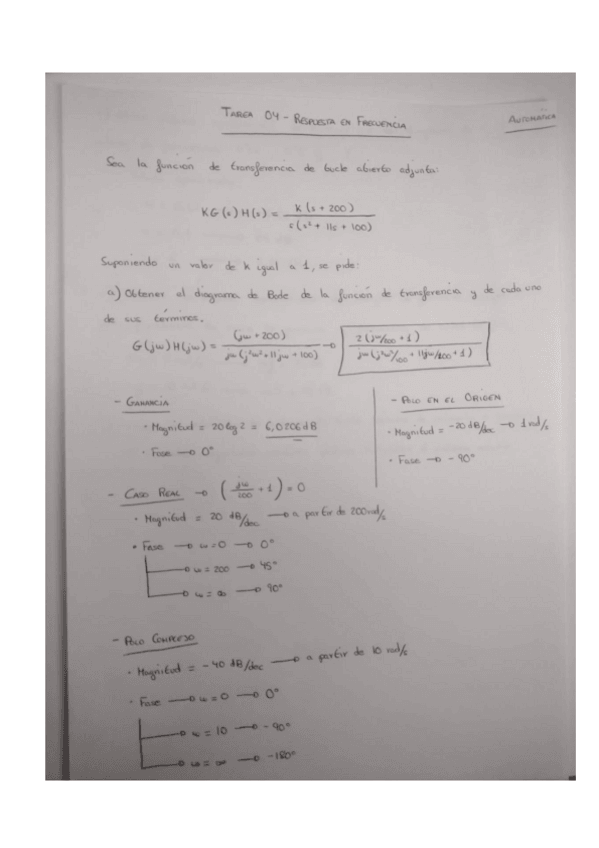 TAREA 04 - RESPUESTA EN FRECUENCIA
AUTOMÁTICA
Sea la función de transferencia de bucle abierto adjunta:
KG(s)H(s) = k(s + 200) / s(s² + 11s + 100)
Suponiendo un valor de k igual a 1, se pide:
a) Obtener el diagrama de Bode de la función de transferencia y de cada uno
de sus términos.
G(jω)H(jω) = (jω + 200) / jω(j²ω² + 11jω + 100) → 2(jω/200 + 1) / jω(j²ω²/100 + 11jω/100 + 1)
- GANANCIA
· Magnitud = 20 log 2 = 6,0206 dB
· Fase → 0°
- POLO EN EL ORIGEN
· Magnitud = -20 dB/dec → 1 rad/s
· Fase → - 90°
- CASO REAL → (jω/200 + 1) = 0
· Magnitud = 20 dB/dec → a partir de 200 rad/s
· Fase → ω = 0 → 0°
ω = 200 → 45°
ω = ∞ → 90°
- POLO COMPLEJO
· Magnitud = - 40 dB/dec → a partir de 10 rad/s
· Fase → ω = 0 → 0°
ω = 10 → - 90°
ω = ∞ → -180°